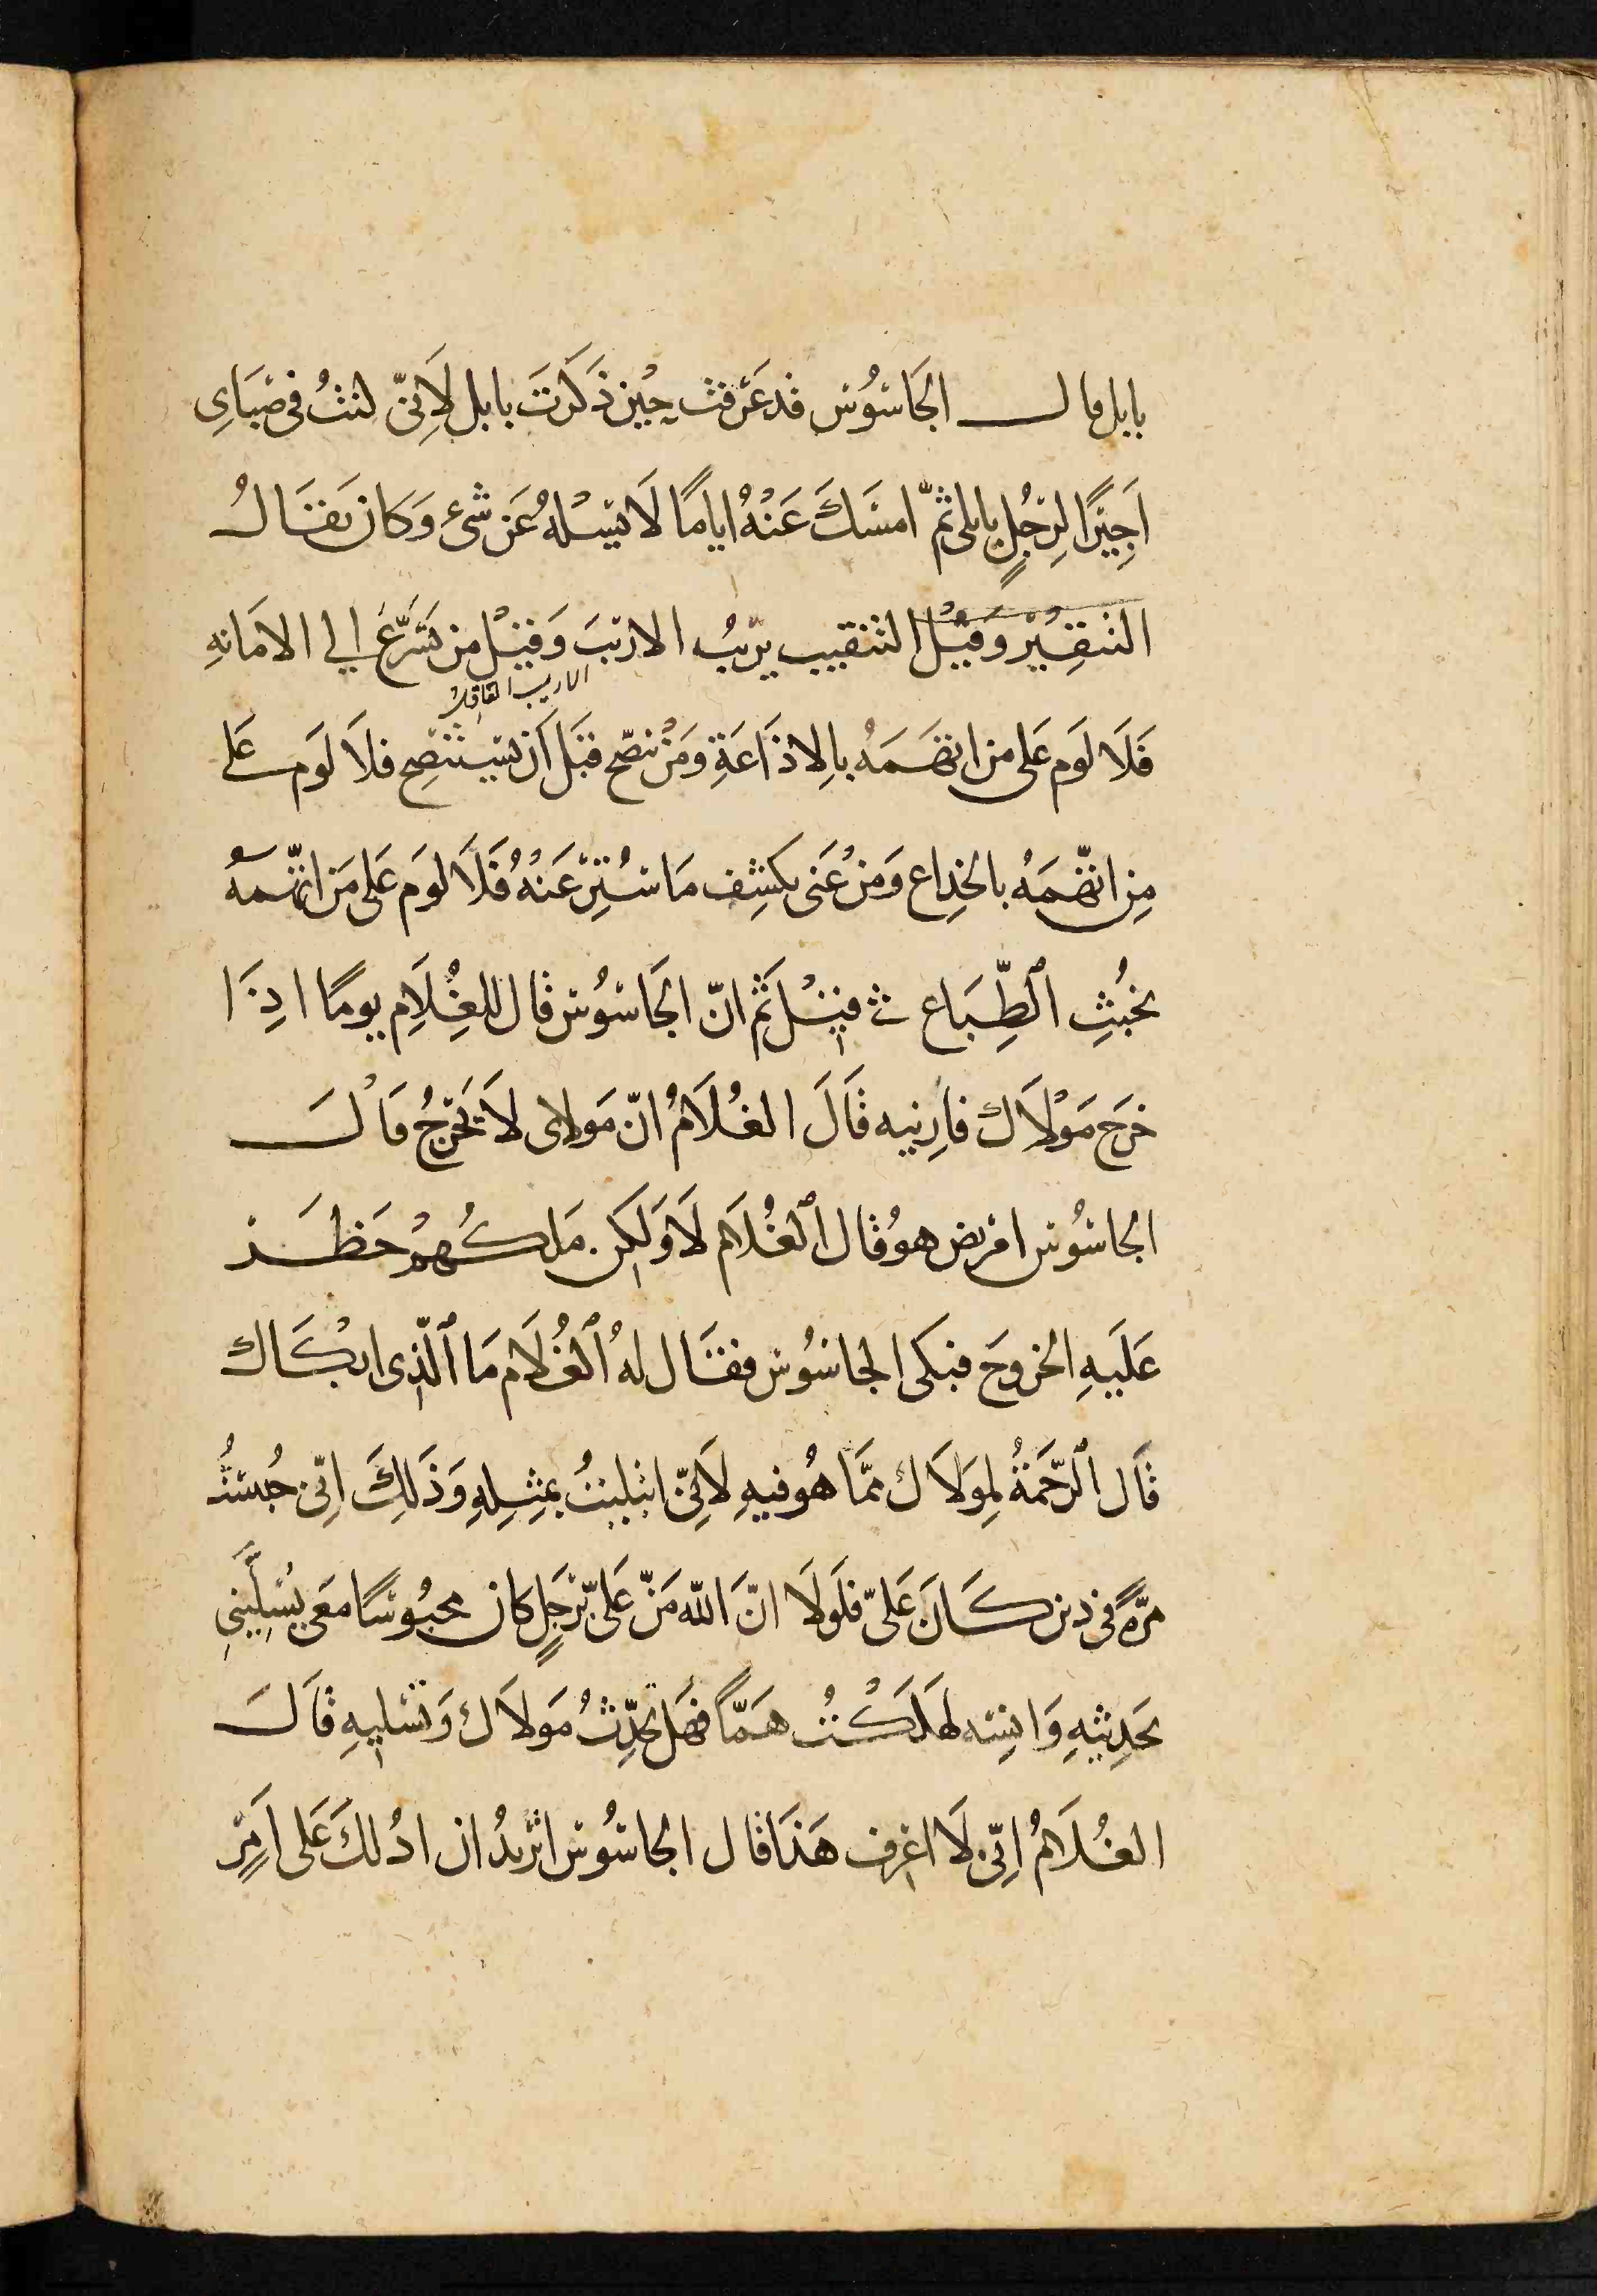 بابل قال الجَاسُوس قد عَرفت حِيْن ذَكرتَ بابل لَانّى كنتُ فى صَباىِ
اَجِيرًا لِرَجُلٍ بابلى ثمّ امسَكَ عَنْهُ اياما لَا يَسْلهُ عَن شىء وَكان يقَالُ
التنقِيْر وَقيْل التنقيب يرِيبُ الاريبَ وَقيْل من تسَرّعَ الى الامَانهِ
الاريب العاقل
فَلَا لوَم عَلى من اتهَمَهُ بالِاذَاعَةِ وَمَنْ نصَح قبَل اَن يستنصِح فلَا لوَم على
مِن اتّهَمَهُ بالخِداع وَمَنْ عُنى بكشِف مَا سُتِرْ عَنْهُ فَلَا لوَم عَلى مَن اتّهمهُ
بخُبثِ الطِّبَاع قيْل ثمّ انّ الجَاسُوس قال للغُلَامِ يومًا اذِا
خرَج مَوْلَاك فارِنيه قَالَ الغُلَامُ انّ مَولاى لَا يَخْرجُ قَالَ
الجاسُوس امريض هوُ قال الغُلَام لَا وَلكِن مَلكهُمْ حَظَر
عَلَيهِ الخروجَ فبكَى الجاسُوس فقَال لهُ الغُلَام مَا الّذِى ابْكَاك
قَال الرّحَمةُ لِمَولَاك ممّا هُو فيهِ لَانّى ابتليتُ بمثِلهِ وَذَلِكَ اِنّى حُبستُ
مرّةً فى دين كَانَ عَلىّ فلَولَا انّ اللّه مَنّ عَلىّ برَجلٍ كان محبُوسًا معَى يُسَلِّينىِ
بحَدِيثهِ وَانسِه لهَلكْتُ هَمّا فهَل تحدِّثُ مَولَاك وَتسليهِ قَالَ
الغُلَامُ اِنّى لَا اعرف هَذَا قال الجاسُوس اتريدُ ان ادُلكَ عَلى اَمرٍ